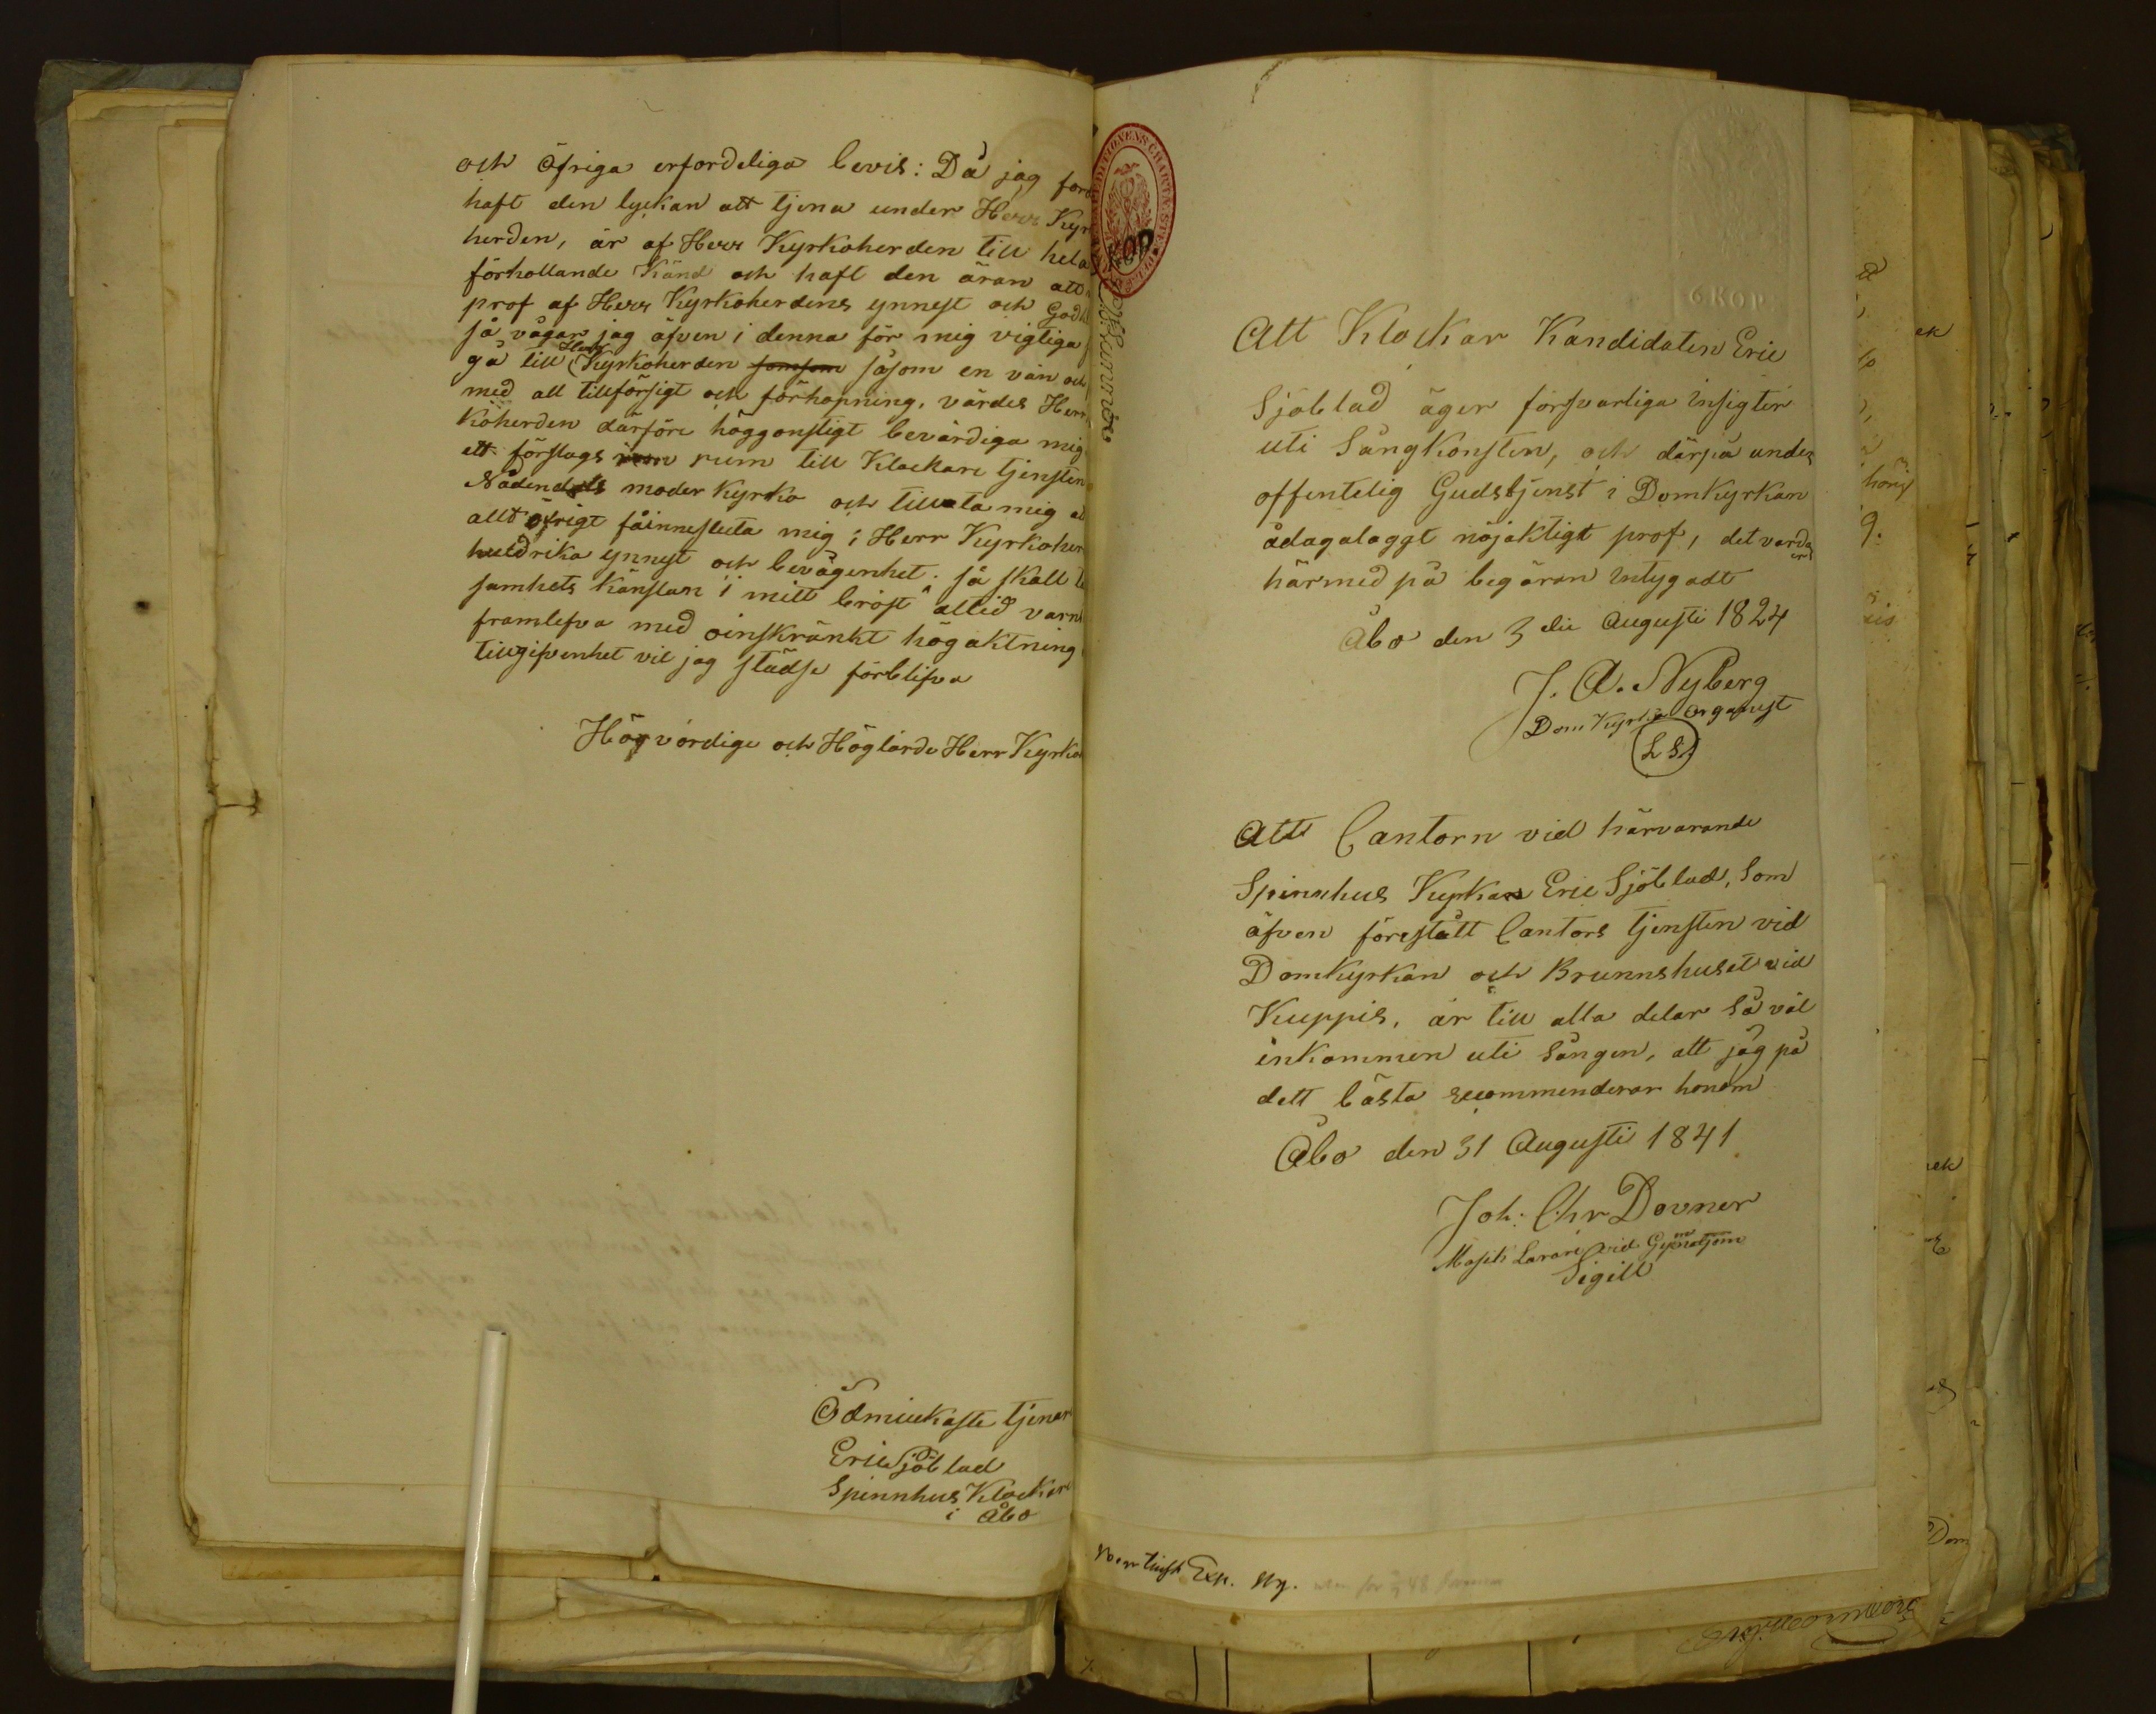 och öfriga erfordeliga bevis: Då jag
haft den lyckan att tjena under Herr Kyr
herden, är af Herr Kyrkoherden till hela
förhollande Känd och haft den äran att
prof af Herr Kyrkoherdens ynnest och God
så vågar jag äfven i denna för mig vigtiga
gå till Herr Kyrkoherden såsom en vän och
med all tillförsigt och förhopning, värdes Herr
Koherden därföre höggonstigt bevärdiga mig
ett förslags rum till Klockare tjensten
Nådendals moder Kyrka och tillåta mig
allt öfrigt få innesluta mig i Herr Kyrkoher
huldrika ynnest och bevågenhet. så skall
samhets känslan i mitt bröst alltid varn
framlefva med oinskränkt högaktning
tillgifvenhet vil jag städse förblifva
Högvördige och Höglärde Herr Kyrko
Ödmiukaste tjenar
Eric Sjöblad
Spinnhus Klockare
i Åbo
6 KOP
Att Klockar Kandidaten Eric
Sjöblad äger försvarliga insigter
uti Sångkonsten, och därpå under
offentelig Gudstjenst i Domkyrkan
ådagalaggt nöjaktigt prof, det varder
härmed på begäran intygadt
Åbo den 3 die Augusti 1824
J. A. Nyberg
Dom Kyrko Organist
L S.
Att Cantorn vid härvarande
Spinnhus Kyrkan Eric Sjöblad, Som
äfven förestått Cantors tjensten vid
Domkyrkan och Brunnshuset vid
Kuppis, är till alla delar så väl
inkommen uti Sången, att jag på
dett bästa recommenderar honom
Åbo den 31 Augusti 1841
Joh. Chr Downer
Musik Lärare vid Gymnasium
Sigill
Exp.